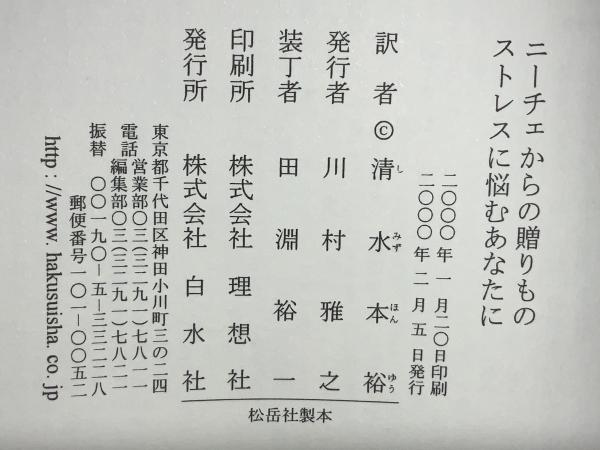 ニーチェからの贈りもの
ストレスに悩むあなたに
二〇〇〇年 一 月二〇日印刷
二〇〇〇年 二 月 五 日発行
訳 者 © 清水本裕
し みず ほん ゆう
発行者 川村雅之
装丁者 田淵裕一
印刷所 株式会社 理想社
発行所 株式会社 白水社
東京都千代田区神田小川町三の二四
電話 営業部〇三(三二九一)七八一一
編集部〇三(三二九一)七八二一
振替 〇〇一九〇-五-三三二二八
郵便番号一〇一-〇〇五二
http://www.hakusuisha.co.jp
松岳社製本